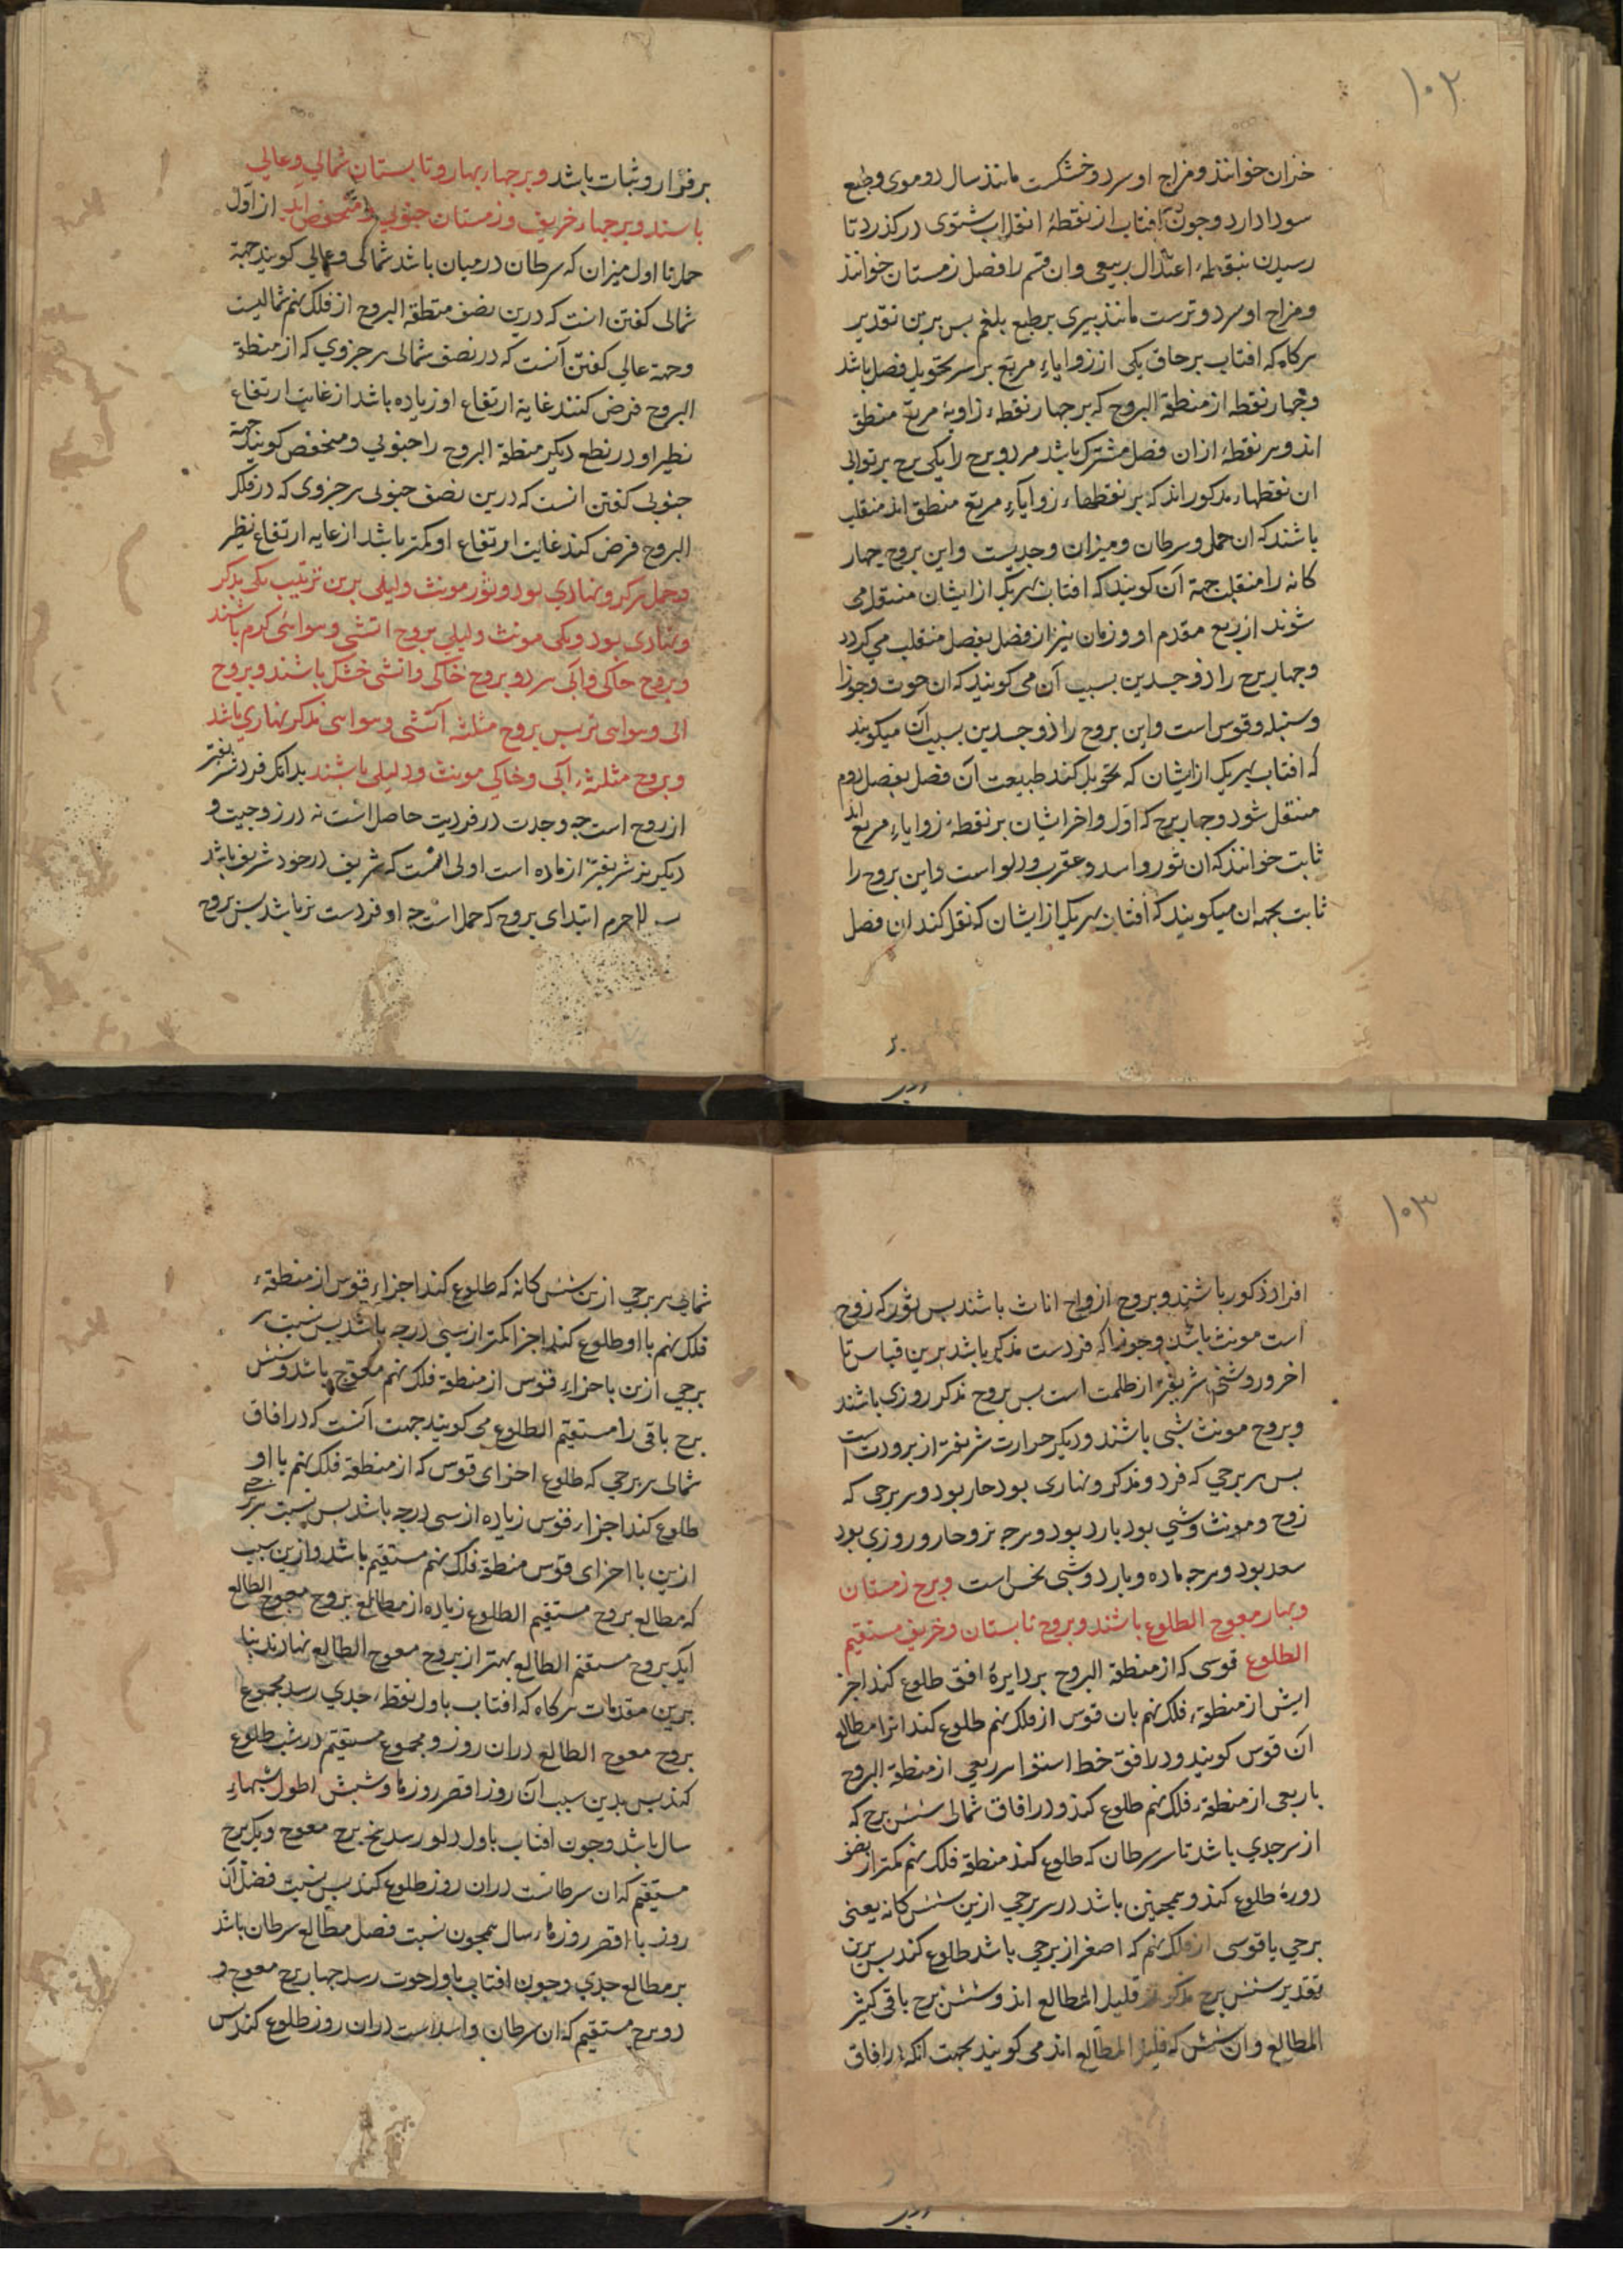 ۱۰۲
خزان خوانند و مزاج او سرد و خشکست مانند سال دوموی و طبع
سودا دارد و چون آفتاب از نقطهٔ انقلاب شتوی درگذرد تا
رسیدن بنقطهٔ اعتدال ربیعی و ان قسم را فصل زمستان خوانند
و مزاج او سرد و ترست مانند پیری بر طبع بلغم بس برین تقدیر
هرکاه که افتاب بر حاق یکی از زوایاء مربع براسر تحویل فصل باشد
و چهار نقطه از منطقة البروج که بر چهار نقطهء زاویهٔ مربع منطق
اند و هر نقطهٔ ازان فصل مشترک باشد مر دو برج را یکی برج بر توالی
ان نقطهاء مذکور اند که بر نقطهاء زوایاء مربع منطق اند منقلب
باشند که ان حمل و سرطان و میزان و جدیست و این بروج چهار
کانه را منقلب جهة آن کویند که افتاب بهر یک از ایشان منتقل می
شوند از ربع مقدم او و زمان نیز از فصل بفصل منقلب می کردد
و چهار برج را ذو جسدین بسبب آن می کویند که ان حوت و جوزا
و سنبله و قوس است و این بروج را ذو جسدین بسبب آن میکویند
که افتاب بهر یک از ایشان که تحویل کند طبیعت آن فصل بفصل دوم
منتقل شود و چهار برج که اول و اخر ایشان بر نقطهء زوایاء مربع اند
ثابت خوانند که ان ثور و اسد و عقرب و دلو است و این بروج را
ثابت بجهه ان میکویند که افتاب بهر یک از ایشان که نقل کند ان فصل
بر قرار و ثبات باشد و برجهاء بهار و تابستان شمالی و عالی
باشند و برجهاء خریف و زمستان جنوبی و منخفض اند از اول
حمل تا اول میزان که سرطان درمیان باشد شمالی و عالی کویند جهة
شمالی کفتن انست که درین نصف منطقة البروج از فلک نهم شمالیست
و جهة عالی کفتن آنست که در نصف شمالی هر جزوی که از منطقة
البروج فرض کنند غایة ارتفاع او زیاده باشد از غایت ارتفاع
نظیر او در نطع دیکر منطقة البروج را جنوبی و منخفض کویند جهة
جنوبی کفتن انست که درین نصف جنوبی هر جزوی که در فلک
البروج فرض کنند غایت ارتفاع او کمتر باشد از غایه ارتفاع نظیر
و حمل مذکر و نهاری بود و ثور مونث و لیلی برین ترتیب یکی مذکر
و نهاری بود و یکی مونث و لیلی بروج اتشی و هوائی کرم باشند
و بروج خاکی و آبی سرد و بروج خاکی و اتشی خشک باشند و بروج
ابی و هوایی تر بس بروج مثلثه آتشی و هوایی مذکر نهاری باشد
و بروج مثلثهء آبی و خاکی مونث و لیلی باشند بدانک فرد شریفتر
از زوج است چه وحدت در فردیت حاصل است نه در زوجیت و
دیکر نر شریفتر از ماده است اولی انست که شریف در خود شریف باشد
لاجرم ابتدای بروج که حمل است چه او فردست نر باشد بس بروج
۱۰۳
افراد ذکور باشند و بروج ازواج اناث باشند بس ثور که زوج
است مونث باشد و جوزا که فردست مذکر باشد برین قیاس تا
اخر و روشنی شریفتر از ظلمت است بس بروج مذکر روزی باشند
و بروج مونث شبی باشند و دیکر حرارت شریفتر از برودت است
بس هر برجی که فرد و مذکر و نهاری بود حار بود و هر برجی که
زوج و مونث و شبی بود بارد بود و هرچه نر و حار و روزی بود
سعد بود و هرچه ماده و بارد و شبی نحس است و برج زمستان
و بهار معوج الطلوع باشند و بروج تابستان و خریف مستقیم
الطلوع قوسی که از منطقة البروج بر دایرهٔ افق طلوع کند اجز
ایش از منطقهء فلک نهم بان قوس از فلک نهم طلوع کند انرا مطالع
آن قوس کویند و در افق خط استوا هر ربعی از منطقة البروج
با ربعی از منطقهء فلک نهم طلوع کند و در افاق شمالی شش برج که
از سر جدی باشد تا سر سرطان که طلوع کند منطقهٔ فلک نهم کمتر از نصف
دورهٔ طلوع کند و همچنین باشد در هر برجی ازین شش کانه یعنی
برجی با قوسی از فلک نهم که اصغر از برجی باشد طلوع کند بس برین
تقدیر شش برج مذکور قلیل المطالع اند و شش برج باقی کثیر
المطالع و ان شش که قلیل المطالع اند می کویند بجهت انکه در افاق
شمالی هر برجی ازین شش کانه که طلوع کند اجزاء قوس از منطقهء
فلک نهم با او طلوع کند اجزا کمتر از سی درجه باشد بس نسبت هر
برجی ازین با جزاء قوس از منطقهٔ فلک نهم معوج باشد و شش
برج باقی را مستقیم الطلوع می کویند جهت آنست که در افاق
شمالی هر برجی که طلوع اجزای قوس که از منطقهٔ فلک نهم با او
طلوع کند اجزاء قوس زیاده از سی درجه باشد بس نسبت هر برجی
ازین با اجزای قوس منطقهٔ فلک نهم مستقیم باشد و ازین سبب
که مطالع بروج مستقیم الطلوع زیاده از مطالع بروج معوج الطالع
آید بروج مستقیم الطالع بهتر از بروج معوج الطالع نهارند بنا
برین مقدمات هرکاه که افتاب باول نقطهء جدی رسد مجموع
بروج معوج الطالع دران روز و مجموع مستقیم در شب طلوع
کند بس بدین سبب آن روز اقصر روزها و شبش اطول شبهاء
سال باشد و چون افتاب باول دلو رسد پنج برج معوج و یک برج
مستقیم که ان سرطانست دران روز طلوع کند بس نسبت فضل آن
روز با اقصر روزهاء سال همچون نسبت فصل مطالع سرطان باشد
بر مطالع جدی و چون افتاب باول حوت رسد چهار برج معوج و
دو برج مستقیم که ان سرطان و اسد است دران روز طلوع کند بس